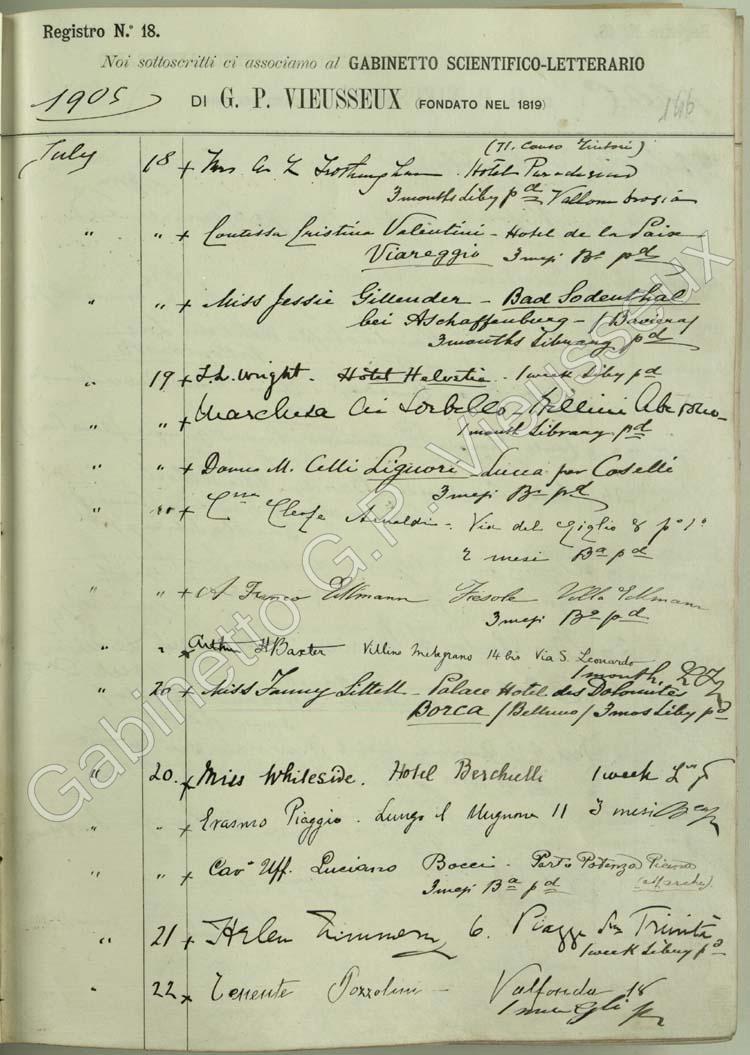 Registro N.° 18.
Noi sottoscritti ci associamo al GABINETTO SCIENTIFICO-LETTERARIO
1905
DI G. P. VIEUSSEUX (FONDATO NEL 1819)
146
July 18 + Mrs
(71. Corso Tintori)
Hotel Paradisino
3 months Liby pd Vallombrosa
" " + Contessa Cristina Valentini - Hotel de la Paix
Viareggio 3 mesi Ba pd
" " + Miss Jessie Gillender - Bad Sodenthal
bei Aschaffenburg - (Baviera)
3 months Library pd
" 19 + Wright. Hôtel Helvetia. 1 week Liby pd
" " + Marchesa di Sorbello - Bellini
1 month Library pd
" " + M. Celli Liguori - Lucca per Caselli
3 mesi Ba pd
" + Cleofe Arnaldi - Via del Giglio 8 po 1o
2 mesi Ba pd
" " + A Franco Fiesole Villa
3 mesi Ba pd
" " Arthur H Baxter Villino Melograno 14 bis Via S. Leonardo
1 month
" 20 + Miss Fanny Littell - Palace Hotel des Dolomites
Borca (Belluno) 3 mos Liby pd
" 20. + Miss Whiteside. Hotel Berchielli 1 week
" " + Erasmo Piaggio. Lungo il Mugnone 11 3 mesi
" " + Cavo Uff. Luciano Bocci - Porto Potenza Picena
3 mesi Ba pd (Marche)
" 21 + Helen Zimmern, 6. Piazza Sta Trinità
1 week Libry pd
" 22 + Tenente Pozzolini - Valfonda 18
Gabinetto G.P. Vieusseux